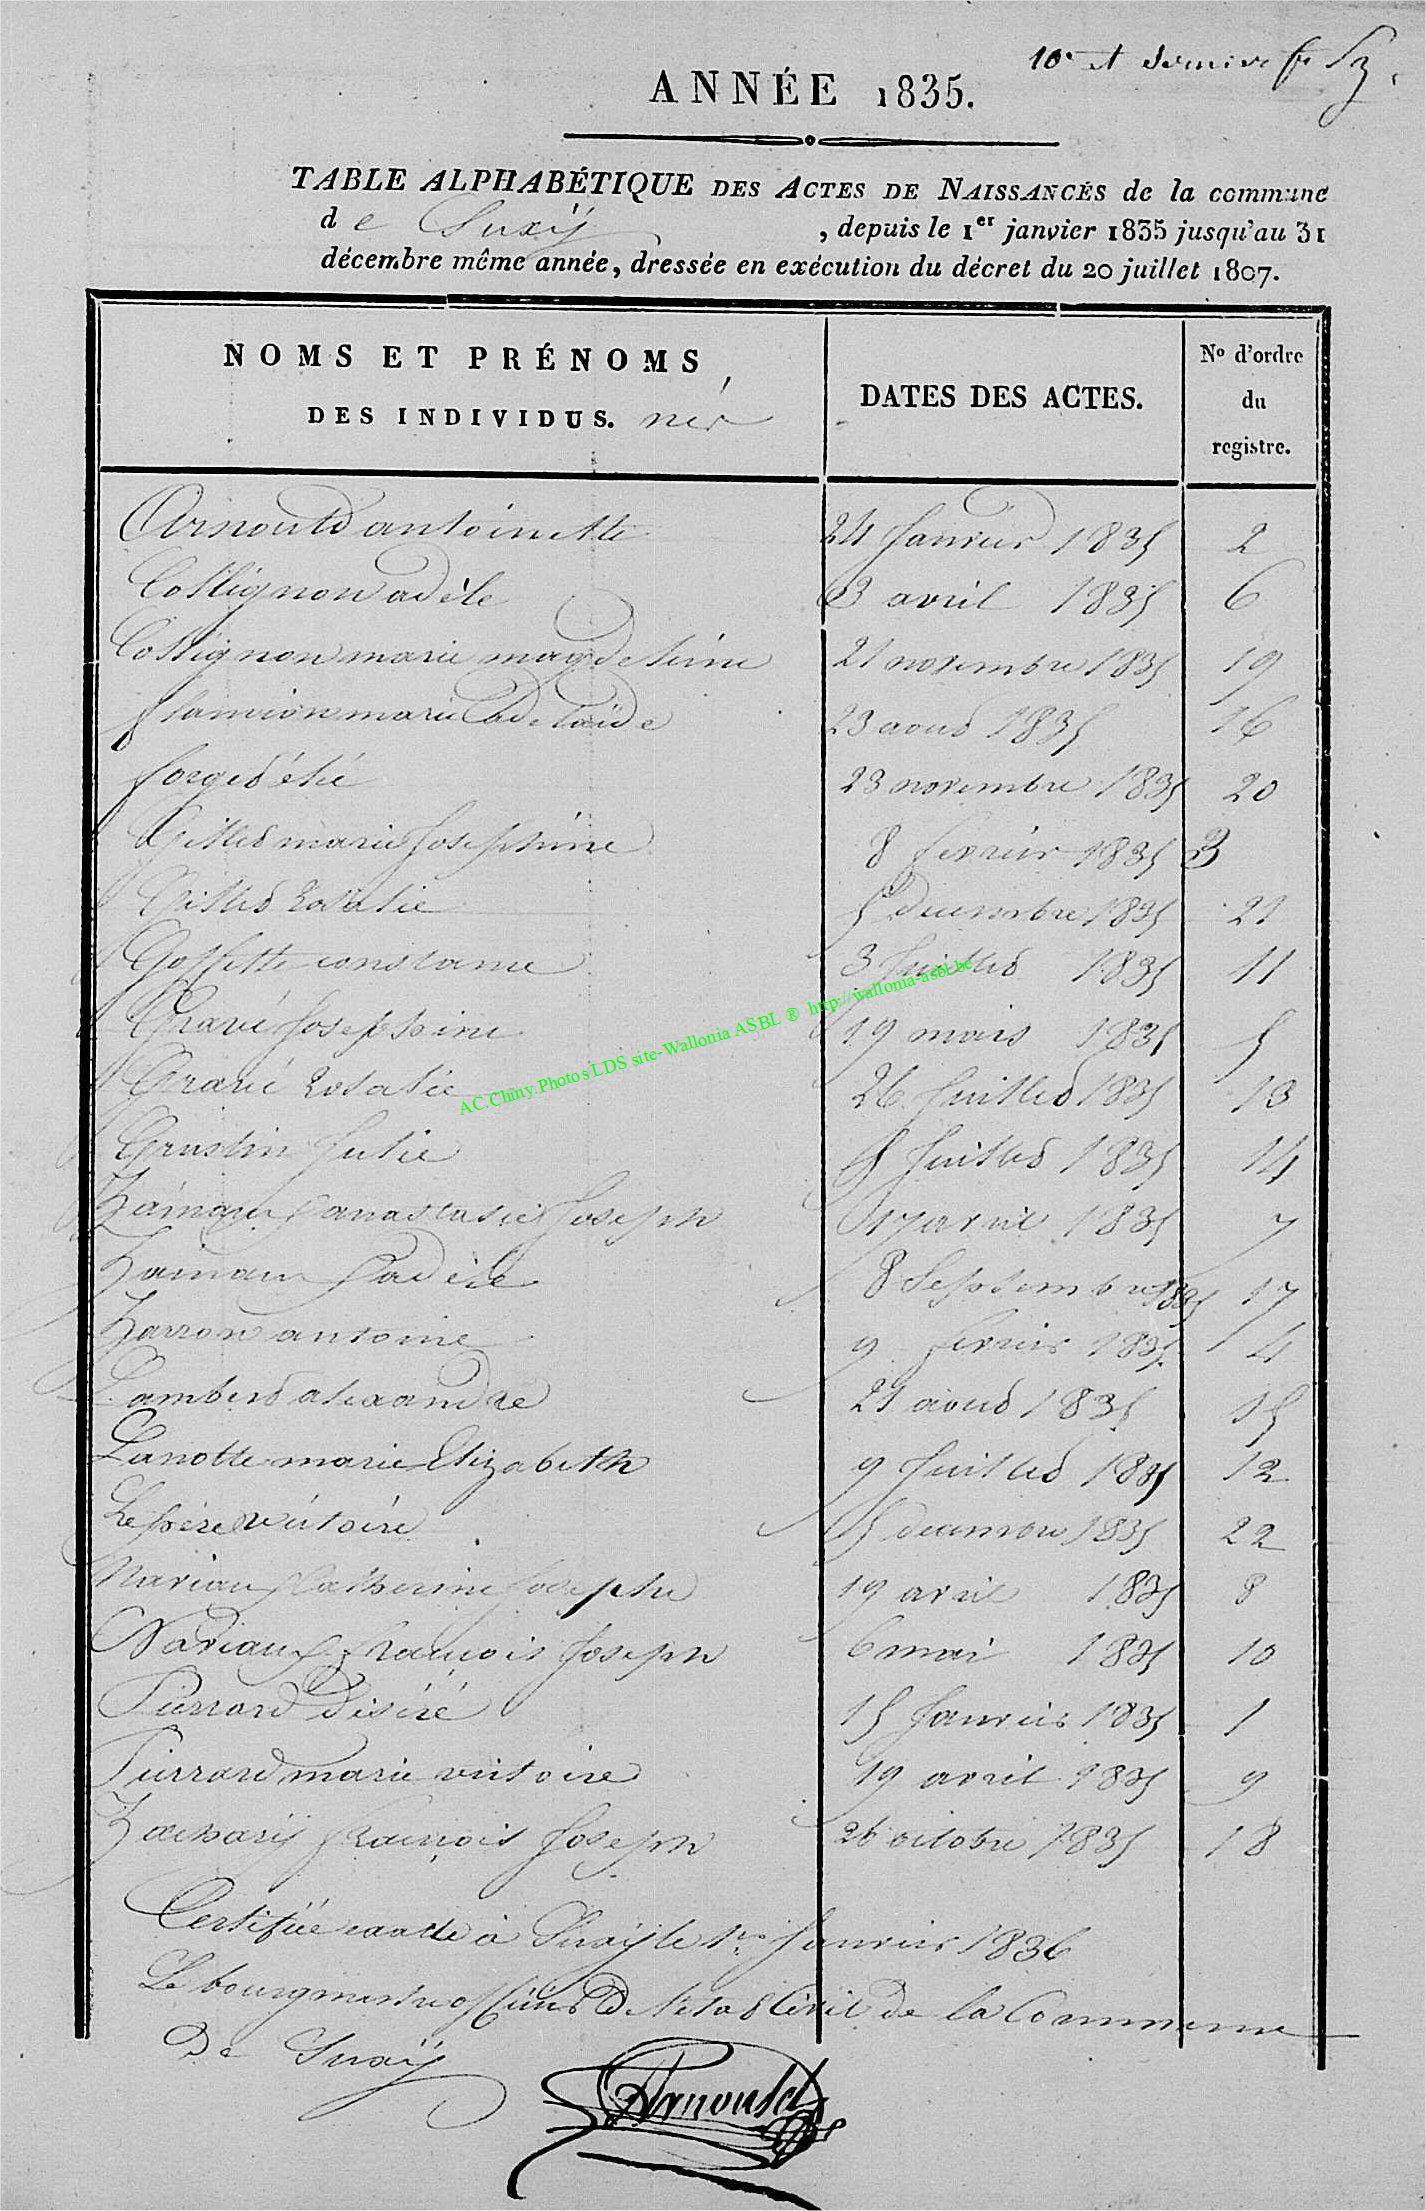 10e et dernier f
ANNÉE 1835.
TABLE ALPHABÉTIQUE DES ACTES DE NAISSANCES de la commune
de Suxÿ, depuis le 1er janvier 1835 jusqu'au 31
décembre même année, dressée en exécution du décret du 20 juillet 1807.
NOMS ET PRÉNOMS
DES INDIVIDUS. nés
DATES DES ACTES.
No d'ordre
du
registre.
Arnould antoinette 24 Janvier 1835 2
Collignon adèle 3 avril 1835 6
Collignon marie magdeleine 21 novembre 1835 19
flamion marie Adelaïde 23 aoud 1835 16
forged 23 novembre 1835 20
Gilled marie Josephine 8 fevrier 1835 3
Gilled Rosalie 5 decembre 1835 21
Goffette constance 3 Juilled 1835 11
Gravé Josephine 19 mars 1835 5
Gravé Rosalie 26 Juilled 1835 13
Grustin Julie Juilled 1835 14
hainaux anastasie Joseph 17 avril 1835 7
hainaux adèle 8 Septembre 1835 17
harron antoine 9 fevrier 1835 4
Lamberd alexandre 21 aoud 1835 15
Lanotte marie Elizabeth 9 Juilled 1835 12
Lepère victoire 5 decembre 1835 22
Naviaux Catherine Joseph 19 avril 1835 8
Naviaux François Joseph 6 mai 1835 10
Pierrard Désiré 15 Janvier 1835 1
Pierrard marie victoire 19 avril 1835 9
Zacharÿ François Joseph 26 octobre 1835 18
Certifiée exacte à Suxÿ le 1er Janvier 1836
Le bourgmestre officier De l'etat Civil de la Commune
De Suxÿ
Arnould
AC.Chiny.Photos LDS site-Wallonia ASBL ® http://wallonia-asbl.be